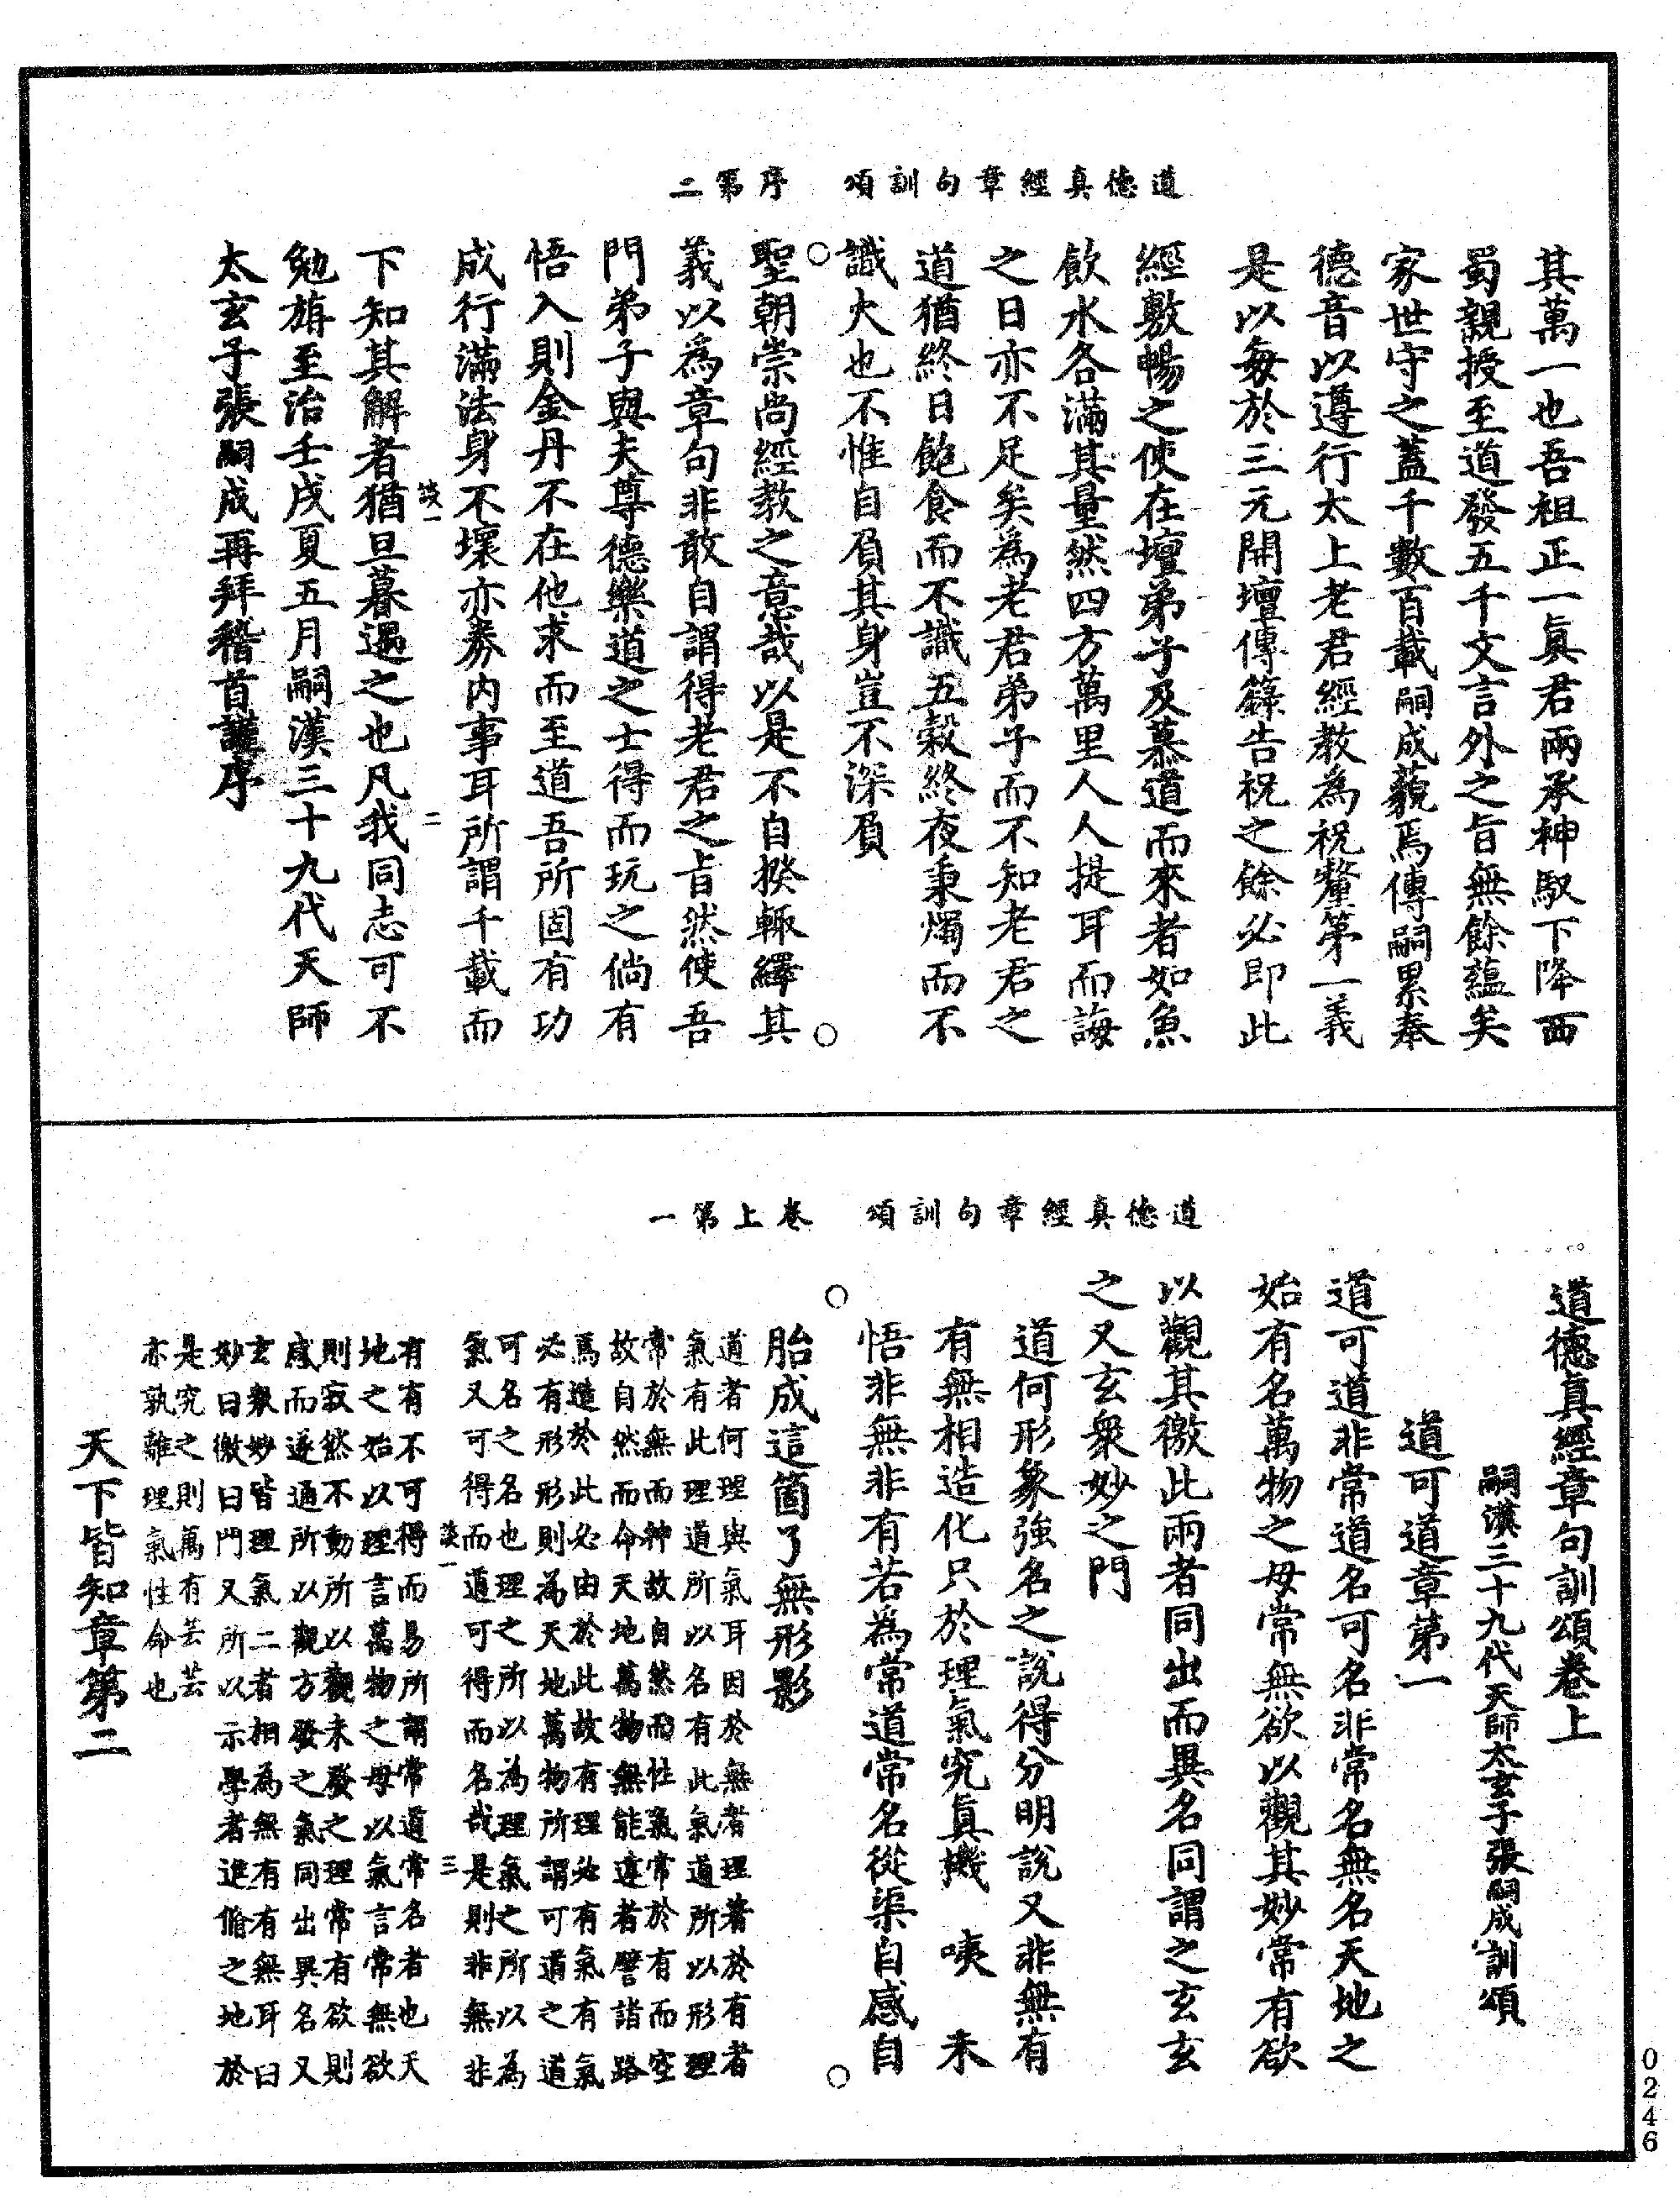 道德真經章句訓頌　序第二
其萬一也吾祖正一真君兩承神馭下降西
蜀親授至道發五千文言外之旨無餘蘊矣
家世守之蓋千數百載嗣成藐焉傳嗣累奉
德音以遵行太上老君經教為祝釐第一義
是以每於三元開壇傳籙告祝之餘必即此
經敷暢之使在壇弟子及慕道而來者如魚
飲水各滿其量然四方萬里人人提耳而誨
之日亦不足矣為老君弟子而不知老君之
道猶終日飽食而不識五穀終夜秉燭而不
識火也不惟自負其身豈不深負
聖朝崇尚經教之意哉以是不自揆輙繹其
義以為章句非敢自謂得老君之旨然使吾
門弟子與夫尊德樂道之士得而玩之倘有
悟入則金丹不在他求而至道吾所固有功
成行滿法身不壞亦券內事耳所謂千載而
談一　二
下知其解者猶旦暮遇之也凡我同志可不
勉旃至治壬戌夏五月嗣漢三十九代天師
太玄子張嗣成再拜稽首謹序
道德真經章句訓頌　卷上第一
道德真經章句訓頌卷上
嗣漢三十九代天師太玄子張嗣成訓頌
道可道章第一
道可道非常道名可名非常名無名天地之
始有名萬物之母常無欲以觀其妙常有欲
以觀其徼此兩者同出而異名同謂之玄玄
之又玄衆妙之門
道何形象強名之說得分明說又非無有
有無相造化只於理氣究真機　咦　未
悟非無非有若為常道常名從渠自感自
胎成這箇了無形影
道者何理與氣耳因於無者理著於有者
氣有此理道所以名有此氣道所以形理
常於無而神故自然而性氣常於有而空
故自然而命天地萬物無能違者譬諸路
焉造於此必由於此故有理必有氣有氣
必有形形則為天地萬物所謂可道之道
可名之名也理之所以為理氣之所以為
氣又可得而道可得而名哉是則非無非
談一　三
有有不可得而易所謂常道常名者也天
地之始以理言萬物之母以氣言常無欲
則寂然不動所以觀未發之理常有欲則
感而遂通所以觀方發之氣同出異名又
玄衆妙皆理氣二者相為無有有無耳曰
妙曰徼曰門又所以示學者進脩之地於
是究之則萬有芸芸
亦孰離理氣性命也
天下皆知章第二
0246